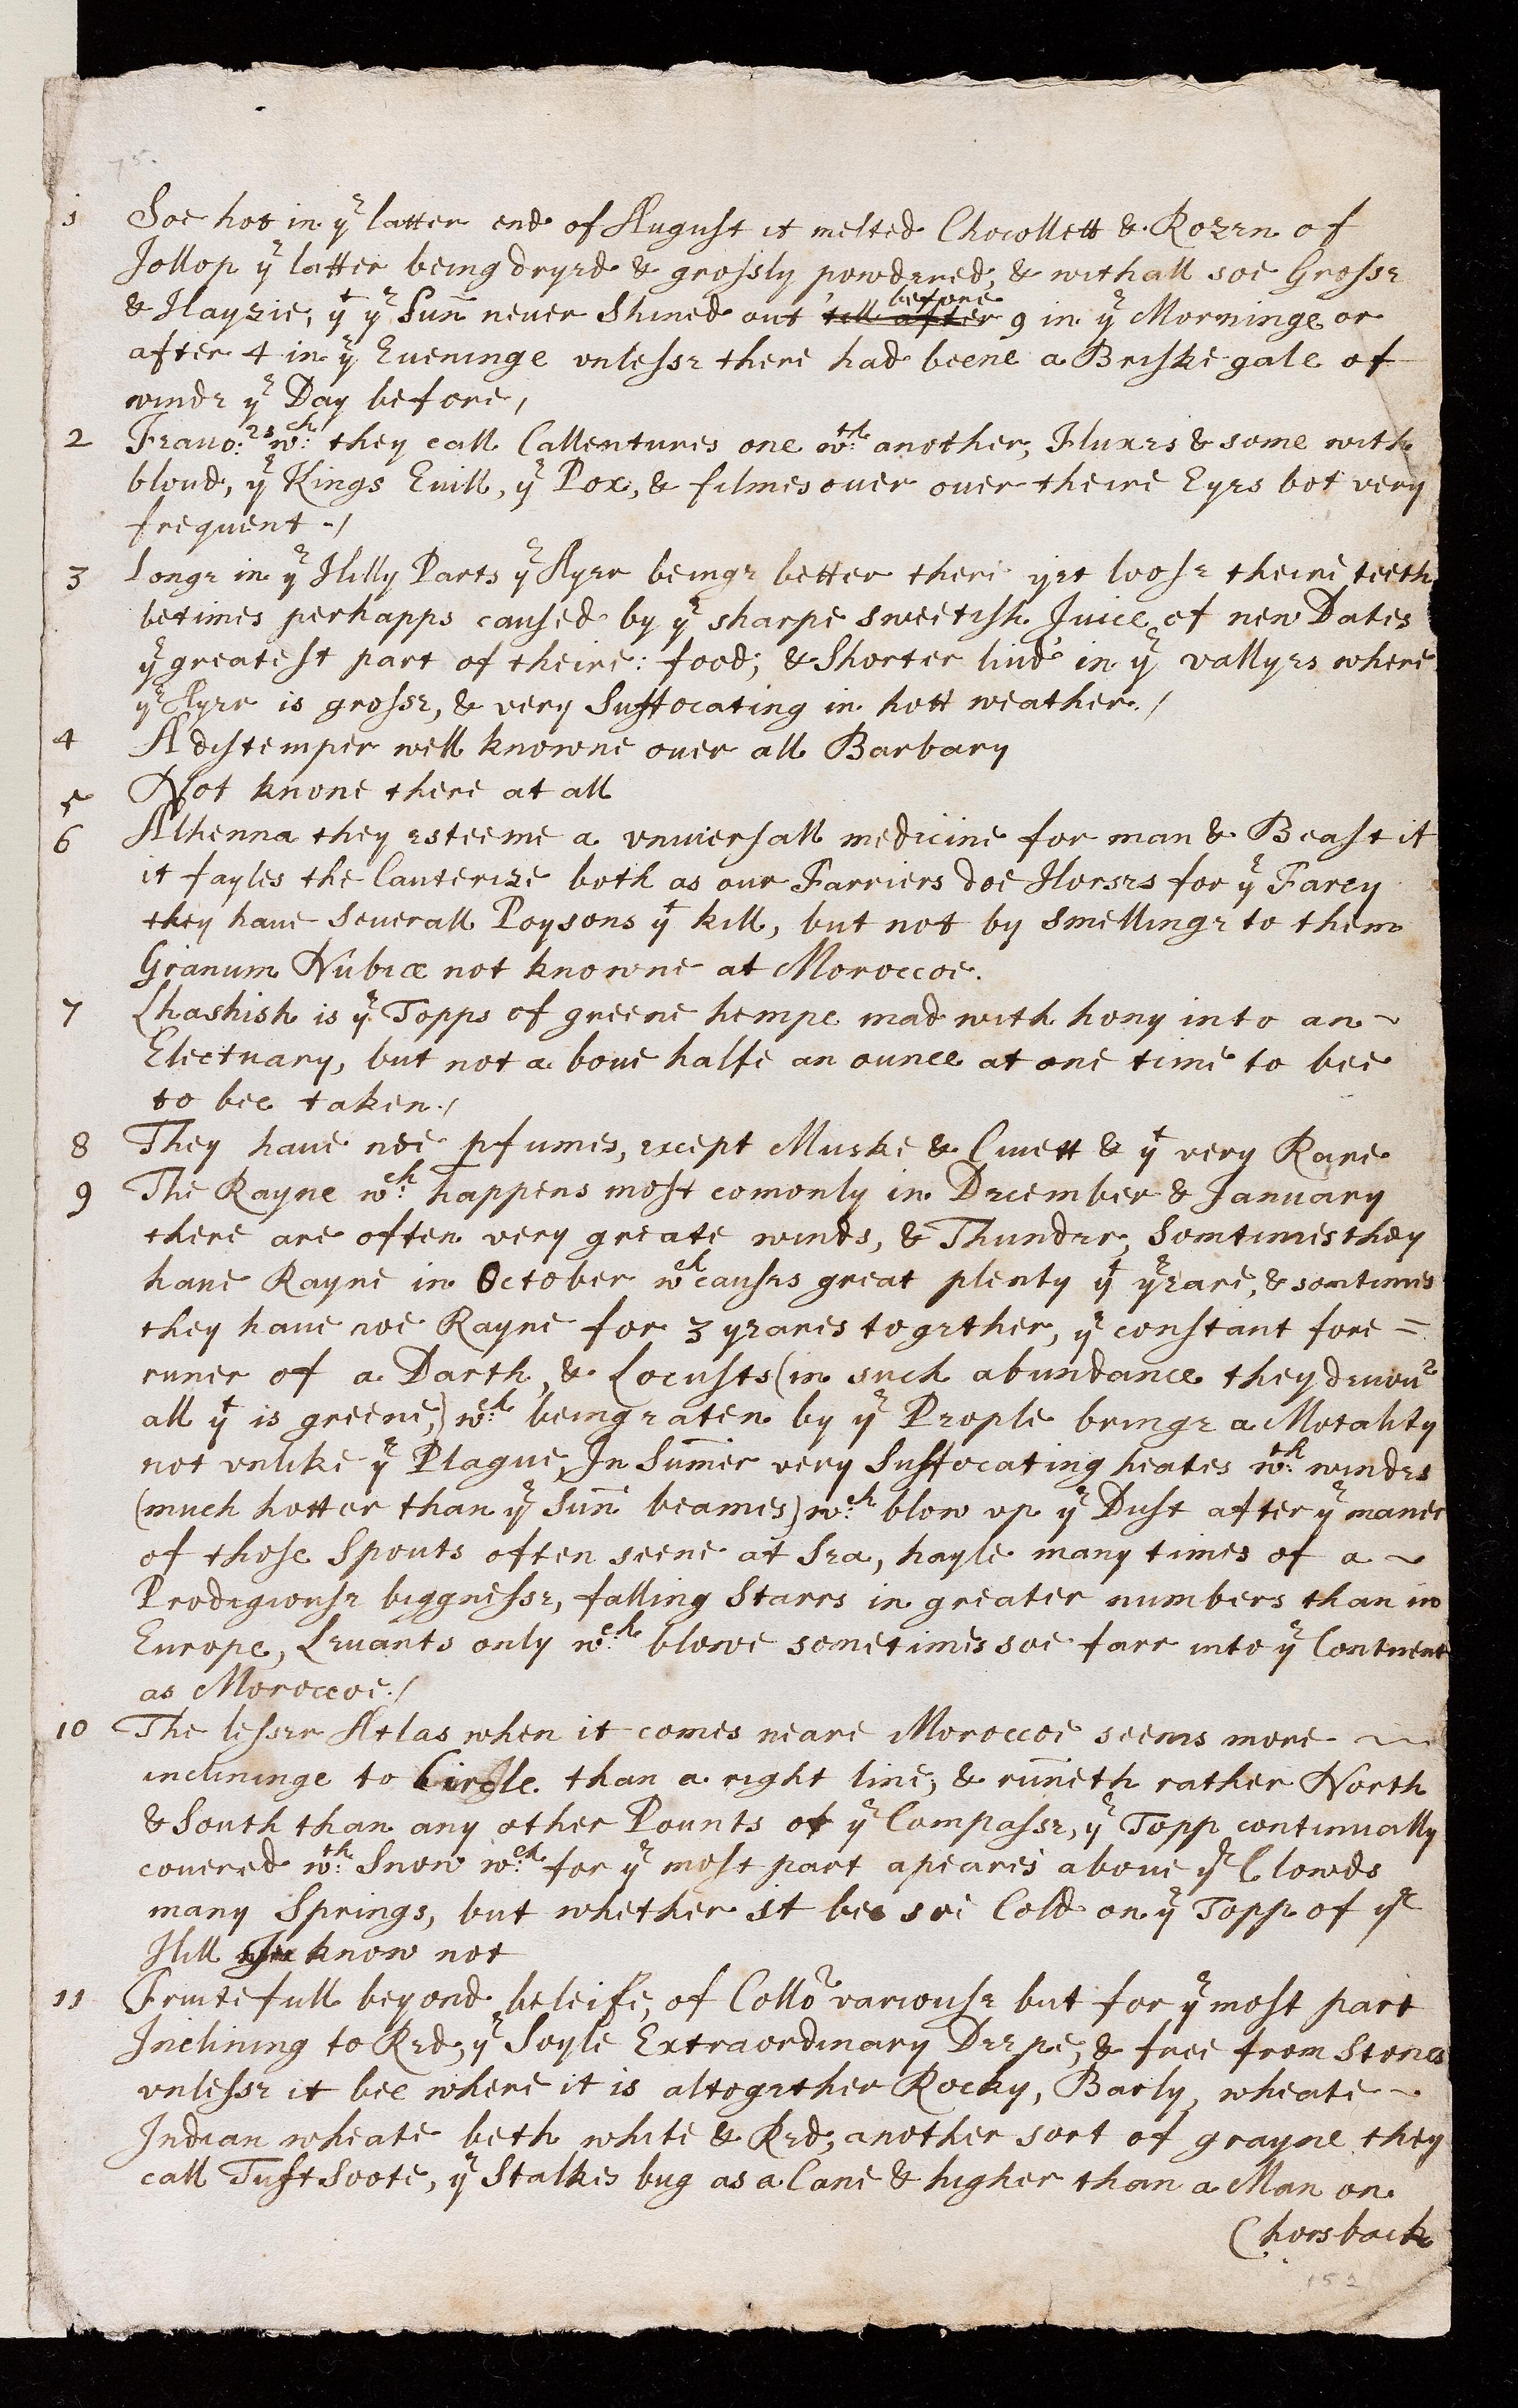 75.
1 Soe hot in ye latter end of August it melted Chocollett & Rozen of
Jollop ye latter being dryed & grossly powdered, & withall soe Grosse
& Hayzie, yt ye Sun̄ never Shined out till after before 9 in ye Morninge or
after 4 in ye Eueninge vnlesse there had beene a Briske gale of
winde ye Day before,
2 Feauo:rs wch: they call Callentures one wth: another, Fluxes & some with
bloud, ye Kings Euill, ye Pox, & filmes ouer ouer theire Eyes bot very
frequent -/
3 Longe in ye Hilly Parts ye Ayer beinge better there yet loose theire teeth
betimes perhapps caused by ye sharpe sweetish Juice of new Dates
ye greatest part of theire: food; & Shorter liud' in ye vallyes where
ye Ayer is grosse, & very Suffocating in hott weather./
4 A distemper well knowne ouer all Barbary
5 Not knone there at all
6 Alhenna they esteeme a vniuersall medicine for man & Beast it
it fayles the Cauterize both as our Farriers doe Horses for ye Farcy
they haue Seuerall Poysons yt kill, but not by smellinge to them
Granum Nubiæ not knowne at Moroccoe.
7 Lhashish is ye Topps of greene hempe mad with hony into an ~
Electuary, but not a boue halfe an ounce at one time to bee
to bee taken./
8 They haue noe pfumes, except Muske & Ciuett & yt very Rare
9 The Rayne wch: happens most comonly in December & January
there are often very greate winds, & Thunder, Somtimes they
haue Rayne in October wch causes great plenty yt yeare, & somtimes
they haue noe Rayne for 3 yeares together, ye constant fore =
runer of a Darth, & Locusts (in such abundance they deuour
all yt is greene,) wch: being eaten by ye People bringe a Motality
not vnlike ye Plague, In Sum̄er very Suffocating heates wth: windes
(much hotter than ye Sun̄ beames) wch: blow vp ye Dust after ye maner
of those Spouts often seene at Sea, hayle many times of a ~
Prodigiouse biggnesse, falling Starrs in greater numbers than in
Europe, Leuants only wch: blowe sometimes soe farr into ye Contnent
as Moroccoe./
10 The lesser Atlas when it comes neare Moroccoe seems more ~
inclininge to Circle than a right line; & run̄eth rather North
& South than any other Pounts of ye Compasse, ye Topp continually
couered wth: Snow wch: for ye most part apeares aboue ye Clowds
many Springs, but whether it bee soe Cold on ye Topp of ye
Hill I know not
11 Fruitefull beyond beleife, of Collor variouse but for ye most part
Inclining to Red, ye Soyle Extraordinary Deepe, & free from Stones
vnlesse it bee where it is altogether Rocky, Barly, wheate ~
Indian wheate beth white & Red, another sort of grayne they
call Tuft Soote, ye Stalkes bug as a Cane & higher than a Man on
(horsback
152